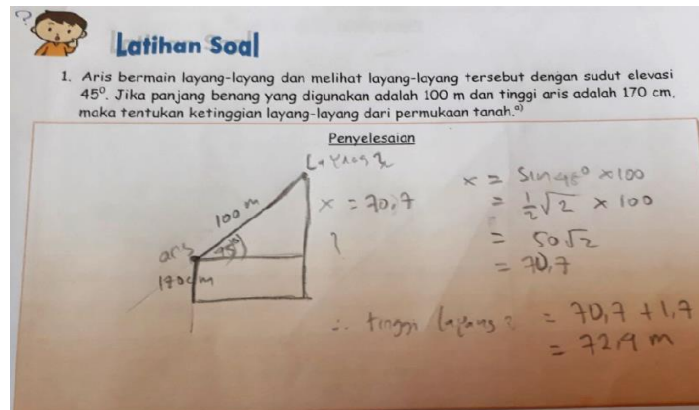 Latihan Soal
1. Aris bermain layang-layang dan melihat layang-layang tersebut dengan sudut elevasi
45⁰. Jika panjang benang yang digunakan adalah 100 m dan tinggi aris adalah 170 cm,
maka tentukan ketinggian layang-layang dari permukaan tanah.ᵃ⁾
Penyelesaian
Layang2
100 m
x = 70,7
?
aris
45°
170cm
x = Sin 45° x 100
= ½√2 x 100
= 50√2
= 70,7
∴ tinggi layang2 = 70,7 + 1,7
= 72,4 m